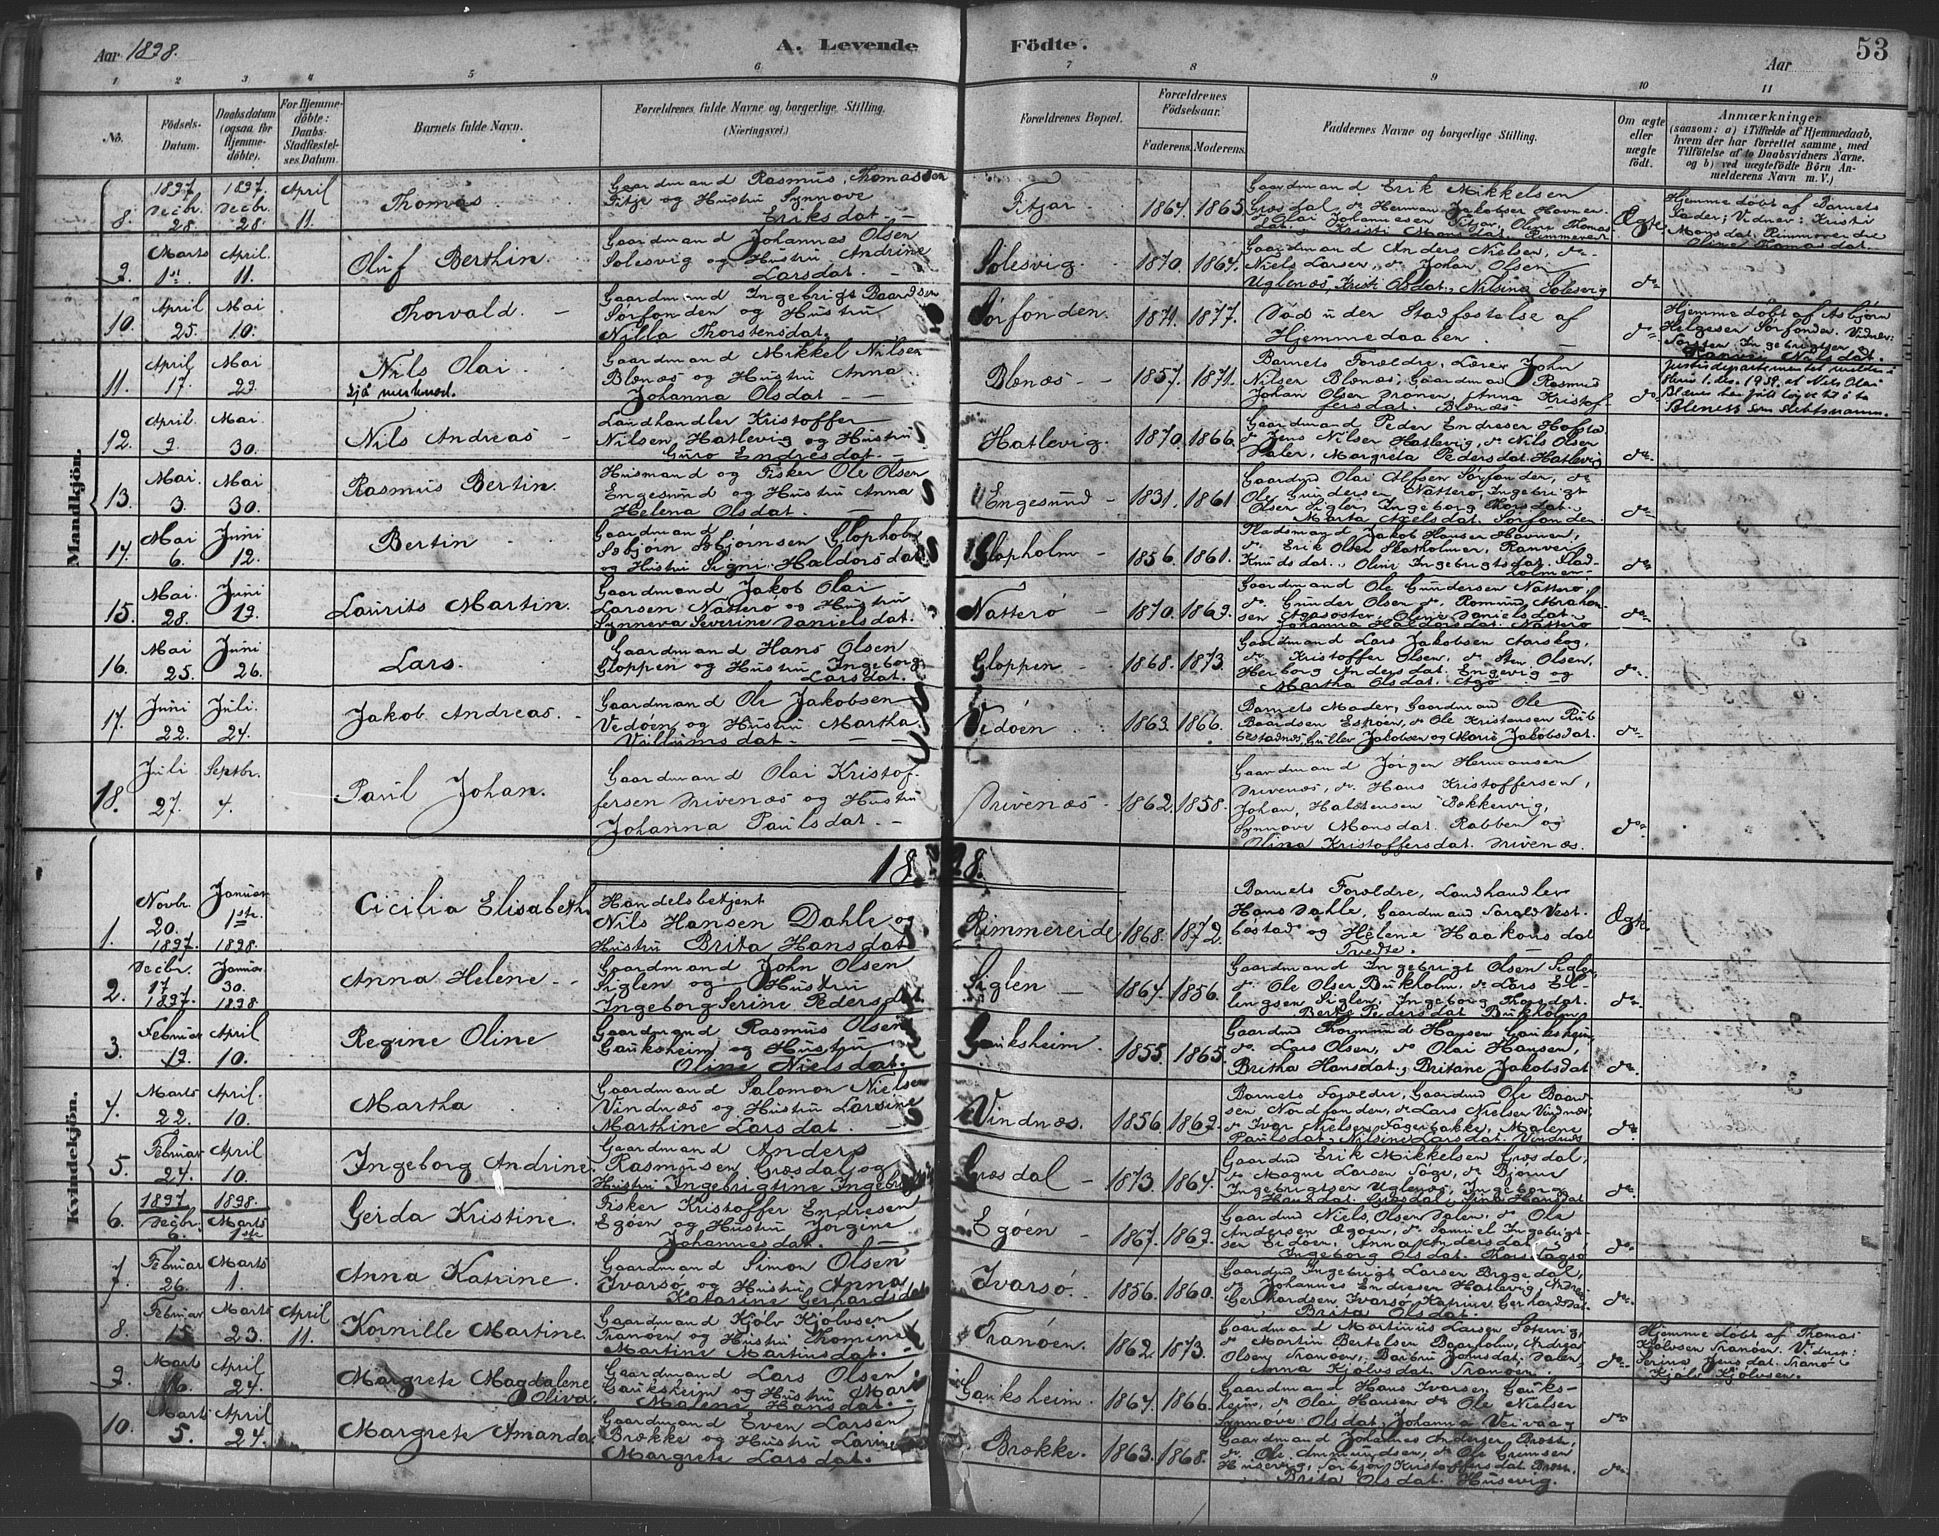 Aar 1898.
A. Levende Födte.
Aar
53
1 2 3 4 5 6 7 8 9 10 11
No.
Födsels-Datum.
Daabsdatum (ogsaa for Hjemme-döbte).
For Hjemme-döbte: Daabs-Stadfæstel-ses Datum.
Barnets fulde Navn.
Forældrenes fulde Navne og borgerlige Stilling. (Næringsvei.)
Forældrenes Bopæl.
Forældrenes Födselsaar.
Faderens. Moderens.
Faddernes Navne og borgerlige Stilling.
Om ægte eller uægte födt.
Anmærkninger
(saasom: a) i Tilfælde af Hjemmedaab, hvem der har forrettet samme, med Tilföielse af to Daabsvidners Navne. og b) ved uægtefödte Börn An-melderens Navn m. V.)
Mandkjön.
8. 1897 Decbr. 28. 1897. Decbr. 28. April 11.
Thomas.
Gaardmand Rasmus Thomassen
Fitje og Hustru Synnove
Eriksdat.
Fitjar 1864. 1865.
Gaardmand Erik Mikkelsen
Græsdal, do Herman Jakobsen Havner.
Ægte
Hjemme döbt af Barnets
Fader; Vidner: Kristi
Monsdat. Rimmereide
Oline Thomasdat.
9. Marts 1st. April. 11.
Oluf Berthin.
Gaardmand Johannes Olsen
Solesvig og Hustru Andrine
Larsdat.
Solesvig. 1870. 1864.
Gaardmand Anders Nielsen, do
Niels Larsen, do Johan Olsen
Uglenæs, Kristi Olsdat., Nilsina Solesvig
do
10. April 25. Mai 10.
Thorvald.
Gaardmand Ingebrigt Baardsen
Sørfonden og Hustru
Nilla Thorstensdat.
Sørfonden. 1871. 1877.
Död under Stadfæstelse af
Hjemmedaaben.
do
Hjemme döbt af Asbjørn
Helgesen Sørfonden. Vidner:
Torsten Ingebrigtsen o
Ranvei Nilsdat.
11. April 17. Mai 29.
Nils Olai
sjå merknad.
Gaardmand Mikkel Nilsen
Blænæs og Hustru Anna
Johanna Olsdat
Blænæs 1857. 1871.
Barnets Foreldre, Lærer John
Nilsen Blænæs, Gaardmand Rasmus
Johan Olsen Dronen, Anna Kristof
fersdat. Blænæs
do
Justisdepartementet melder i
skriv 1. des. 1959. at Nils Olai
Blænes har fått løyve til å ta
Bleness som slektsnamn.
12. April. 9. Mai 30.
Nils Andreas
Landhandler Kristoffer
Nilsen Hatlevig og Hustru
Guro Endresdat
Hatlevig. 1870. 1866.
Gaardmand Peder Endresen Hofsta
do Jens Nilsen Hatlevig, do Nils Olsen
Dalen, Margreta Pedersdat. Hatlevig
do
13. Mai. 3. Mai 30.
Rasmus Bertin.
Husmand og Fisker Ole Olsen
Engesund og Hustru Anna
Helena Olsdat.
Engesund 1831. 1861
Gaardmd Olai Olsen Sørfonden, do
Ole Gundersen Natterö, Ingebrigt
Olsen Siglen, Ingeborg Thorsdat.
Marta Axelsdat. Sørfonden.
do
14. Mai 6. Juni 12.
Bertin
Gaardmand
Asbjørn Asbjørnsen Glopholm
og Hustru Signi Haldorsdat
Glopholm 1856. 1861.
Pladsmand Jakob Hansen Havner,
do Erik Olsen Skatholmen, Ranvei
Knudsdat., Olini Ingebrigtsdat.
do
15. Mai. 28. Juni 19.
Laurits Martin.
Gaardmand Jakob Olai
Larsen Natterø og Hustru
Synneva Severine Danielsdat.
Natterø 1870. 1869.
Gaardmand Ole Gundersen Natterø
do Gunder Olsen do, Romund Abraham
sen Agasøster, Oline Danielsdat
Johanna Haldorsdat. Natterø
do
16. Mai 25. Juni 26.
Lars.
Gaardmand Hans Olsen
Gloppen og Hustru Ingeborg
Larsdat.
Gloppen 1868. 1873.
Gaardmand Lars Jakobsen Aarskog,
do Kristoffer Olsen, do Sten Olsen,
Herborg Andersdat. Engevig og
Martha Olsdat. Agø
do
17. Juni 22. Juli. 24.
Jakob Andreas
Gaardmand Ole Jakobsen
Vedøen og Hustru Martha
Villumsdat.
Vedøen 1863. 1866.
Barnets Moder, Gaardmand Ole
Baardsen Espøen, do Ole Kristensen Rub
bestadnæs, Guller Jakobsen og Marie Jakobsdat.
do
18. Juli 27. Septbr. 4.
Paul Johan.
Gaardmand Olai Kristof-
fersen Drivenæs og Hustru
Johanna Paulsdat.
Drivenæs 1862. 1858.
Gaardmand Jørgen Hermansen
Drivenæs, do Hans Kristoffersen,
Johan Halstensen Bekkervig,
Synnøve Monsdat. Rabben og
Olina Kristoffersdat. Drivenæs.
do
1898.
Kvindekjön.
1. Novbr. 20. 1897. Januar 1ste 1898.
Cicilia Elisabeth
Handelsbetjent
Nils Hansen Dahle og
Hustru Brita Hansdat
Rimmereide, 1868. 1872.
Barnets Foreldre, Landhandler
Hans Dahle, Gaardmand Harald Vest
bøstad og Helene Haakonsdat
Tvedte.
Ægte
2. Decbr. 17 1897. Januar. 30. 1898.
Anna Helene
Gaardmand John Olsen
Siglen og Hustru
Ingeborg Serine Pedersdat.
Siglen 1864. 1856.
Gaardmand Ingebrigt Olsen Siglen,
do Ole Olsen Bukholm, do Lars El-
lingsen Siglen, Ingeborg Thorsdat.
Berte Pedersdat Bukholm
do
3. Februar 19. April 10.
Regine Oline
Gaardmand Rasmus Olsen
Gauksheim og Hustru
Oline Nielsdat.
Gauksheim. 1855. 1865.
Gaardmd Thormund Hansen Gauksheim
do Lars Olsen, do Olai Hansen,
Britha Hansdat., Britane Jakobsdat
do
4. Marts 22. April. 10.
Martha
Gaardmand Salomon Nielsen
Vindnæs og Hustru Larsine
Marthine Larsdat.
Vindnæs. 1856. 1869.
Barnets Foreldre, Gaardmd Ole Baard
sen Nordfonden, do Lars Nielsen Vindnæs,
do Ivar Nielsen Fagerbakke, Malene
Paulsdat., Nilsine Larsdat. Vindnæs
do
5. Februar 24. April 10.
Ingeborg Andrine
Gaardmand Anders
Rasmusen Græsdal og
Hustru Ingebrigtine Ingebr
Græsdal 1873. 1864.
Gaardmd Erik Mikkelsen Græsdal,
do Magne Larsen Tøge, do Bjørne
Ingebrigtsen Uglenæs, Ingeborg
Hansdat. Græsdal, Sina Hansdat
do
6. 1897 Decbr. 6. 1898. Marts 1ste
Gerda Kristine.
Fisker Kristoffer Endresen
Egöen og Hustru Jørgene
Johannesdat.
Egöen 1867. 1869.
Gaardmd Niels Olsen Dalen, do Ole
Andersen Ægøen, do Samuel Ingebrigt
sen Eidøen, Anna Andersdat
Ingeborg Olsdat.
do
7. Februar 26. Marts 1.
Anna Katrine.
Gaardmand Simon Olsen
Ivarsø og Hustru Anna
Katarine Gerhardsdat
Ivarsö. 1856. 1860.
Gaardmd Ingebrigt Larsen Bryggedal,
do Johannes Endresen Hatlevig, Andreas
Gerhardsen Ivarsø, Katrine Gerhardsdat
Brita Olsdat.
do
8. Februar 15 Marts 23. April 11.
Kornille Martine.
Gaardmand Kjølv Kjølvsen
Tranøen og Hustru Thomine
Martine Martinsdat.
Tranøen. 1862. 1873.
Gaardmand Martinus Larsen Solevig,
do Martin Bertelsen Baarholm, Andreas
Olsen Tranøen, Barbru Johnsdat. Dalen
Anna Kjølvsdat. Tranøen.
do
Hjemme döbt af Thomas
Kjølvsen Tranøen. Vidner:
Serina Jensdat. Tranø
Kjølv Kjølvsen.
9. Mart 16. April 24.
Margrete Magdalene
Oliva.
Gaardmand Lars Olsen
Gauksheim og Hustru Mari
Malene Hansdat.
Gauksheim. 1864. 1866.
Gaardmand Hans Ivarsen Gauks-
heim, do Olai Hansen do Ole Nielsen
Synnøve Olsdat., Johanna Veivaag
do
10. Marts 5. April 24.
Margrete Amanda.
Gaardmand Even Larsen
Brække og Hustru Larine
Margrete Larsdat.
Brække. 1863. 1868.
Gaardmand Johannes Andersen
do Ole Ammundsen, do Ole Grimsen
Husevig, Torbjør Kristoffersdat
Brita Olsdat. Husevig.
do